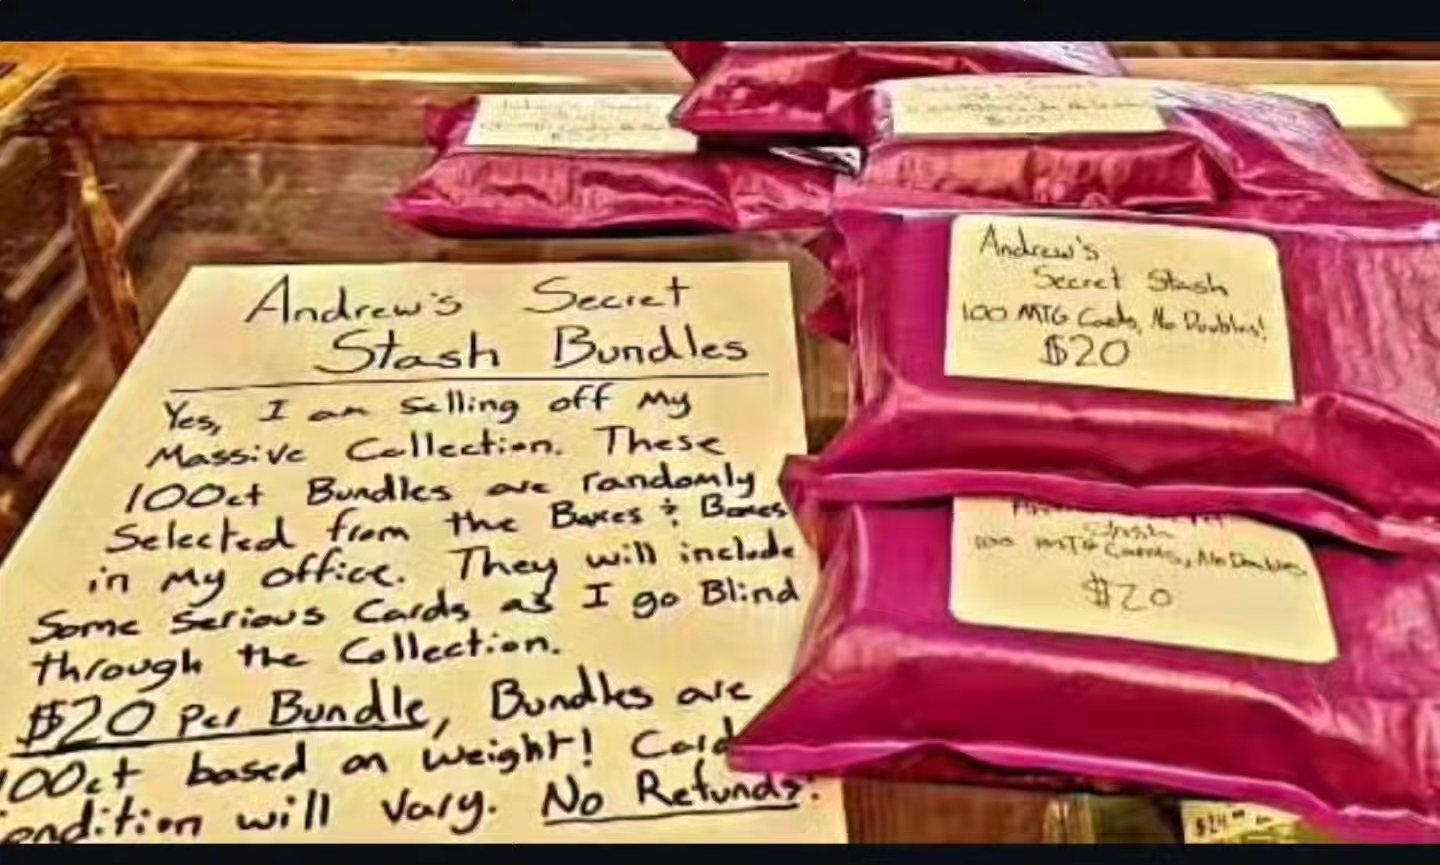 Andrew's Secret
Stash Bundles
Yes, I am Selling off My
Massive Collection. These
100ct Bundles are randomly
Selected from the Boxes & Boxes
in My office. They will include
Some Serious Cards as I go Blind
through the Collection.
$20 Per Bundle, Bundles are
100ct based on weight! Card
ondition will Vary. No Refunds!
Andrew's
Secret Stash
100 MTG Cards, No Doubles!
$20
Stash
100 MTG Cards, No Doubles
$20
$24